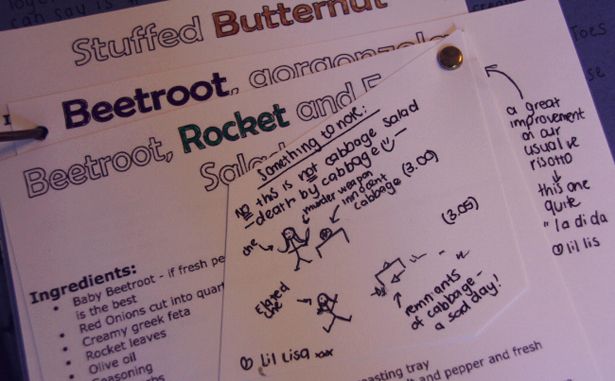 can say is
Stuffed Butternut
Beetroot, gorgonzola
Beetroot, Rocket and F
Sala
Ingredients:
Baby Beetroot - if fresh pe
is the best
Red Onions cut into quar
Creamy greek feta
Rocket leaves
Olive oil
Seasoning
asting tray
lt and pepper and fresh
something to note:
NO this is not cabbage salad
- death by cabbage
murder weapon
innocent
cabbage (3.00)
che
(3.05)
Elated
che
remniants
of cabbage -
a sad day!
Lil Lisa xxx
a great
improvement
on our
usual ve
risotto
this one
quite
"la di da
lil lis
Toes
se